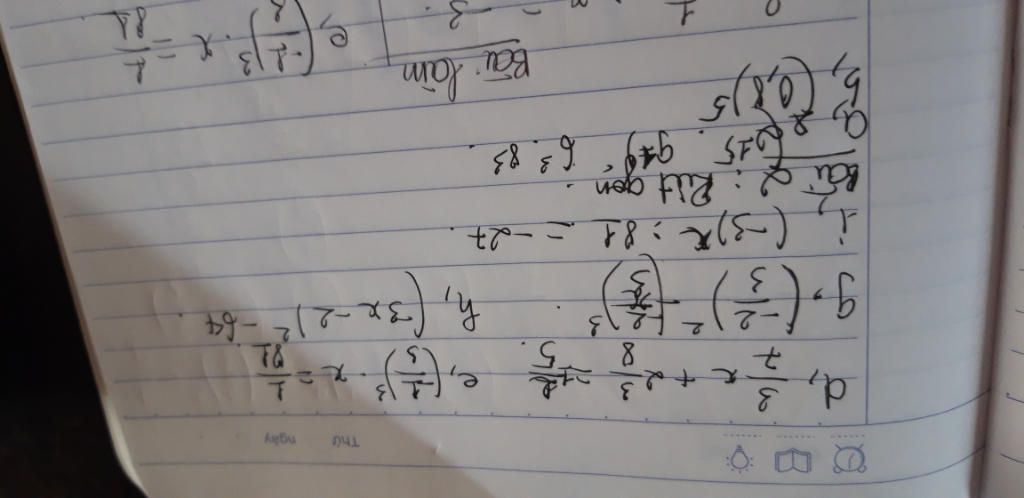 Thứ ngày
d, 3/7 x + 2 3/8 = 12/5 . e, (-1/3)³ . x = 1/81
g, (-2/3)² - (-2/3)³ . h, (3x - 2)² = 64 .
i, (-3)ˣ : 81 = -27 .
Bài 2 : Rút gọn .
a, 2¹⁵ . 9⁴ / 6³ . 8³ .
b, (0,8)⁵
Bài làm
e, (-1/3)³ . x = 1/81